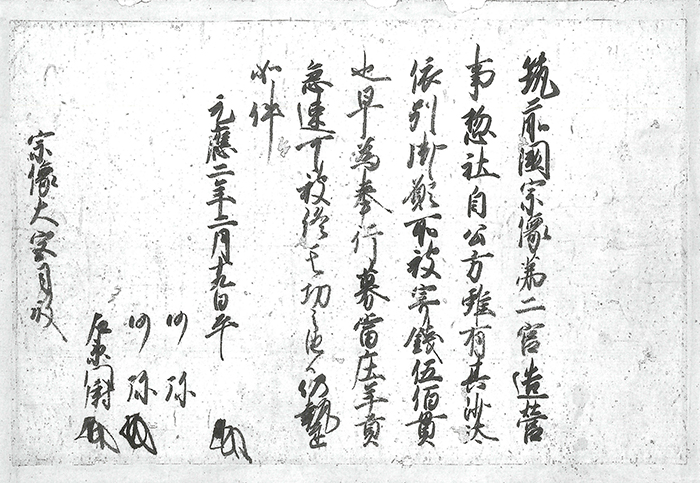 筑前國宗像第二宮造営
事惣社自公方雖有其沙汰
依別御願所被寄銭伍佰貫
也早為奉行募當庄年貢
急速可被終其功之由候仍執達
如件
元應二年二月九日
沙弥
沙弥
左衛門尉
宗像大宮司殿